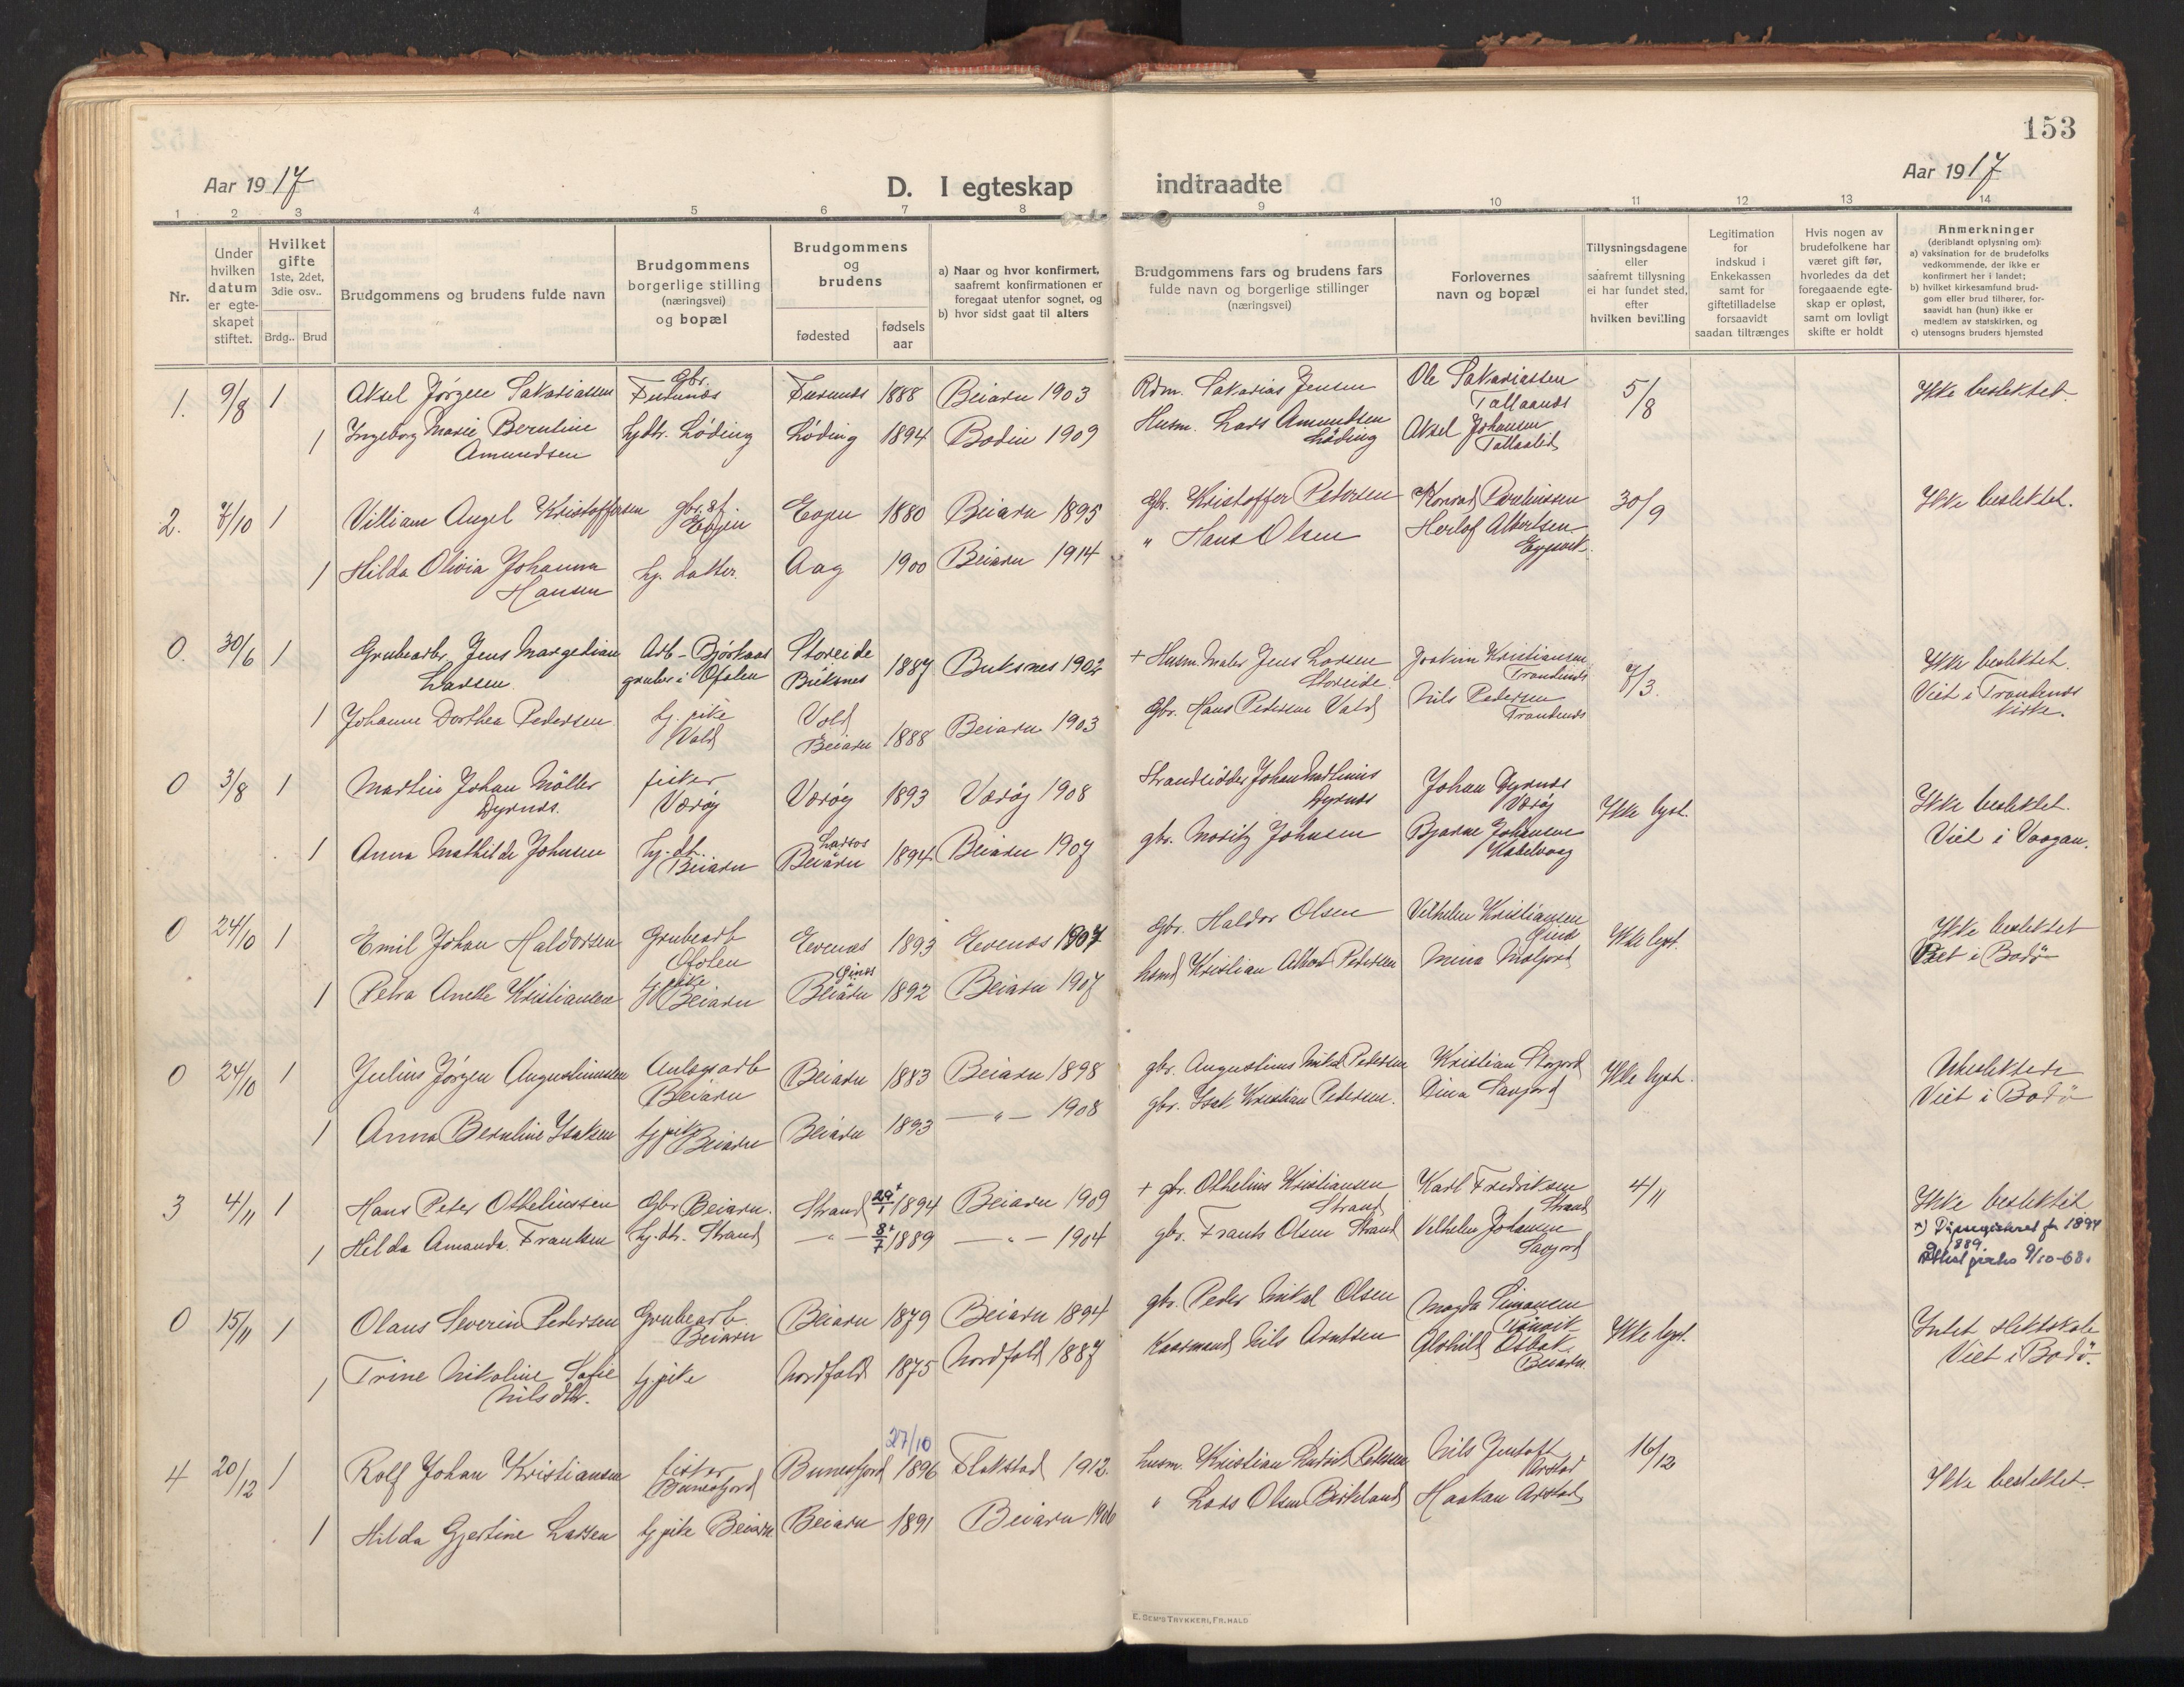 153
Aar 1917
D. I egteskap indtraadte
Aar 1917
1 2 3 4 5 6 7 8 9 10 11 12 13 14
Nr.
Under hvilken datum er egteskapet stiftet.
Hvilket gifte
1ste, 2det, 3die osv..
Brdg.. Brud
Brudgommens og brudens fulde navn
Brudgommens borgerlige stilling (næringsvei) og bopæl
Brudgommens og brudens
fødested
fødsels aar
a) Naar og hvor konfirmert, saafremt konfirmationen er foregaat utenfor sognet, og
b) hvor sidst gaat til alters
Brudgommens fars og brudens fars fulde navn og borgerlige stillinger (næringsvei)
Forlovernes navn og bopæl
Tillysningsdagene eller saafremt tillysning ei har fundet sted, efter hvilken bevilling
Legitimation for indskud i Enkekassen samt for giftetilladelse forsaavidt saadan tiltrænges
Hvis nogen av brudefolkene har været gift før, hvorledes da det foregaaende egteskap er opløst, samt om lovligt skifte er holdt
Anmerkninger
(deriblandt oplysning om):
a) vaksination for de brudefolks vedkommende, der ikke er konfirmert her i landet;
b) hvilket kirkesamfund brudgom eller brud tilhører, forsaavidt han (hun) ikke er medlem av statskirken, og
c) utensogns bruders hjemsted
1. 9/8 1 Aksel Jørgen Sakariassen Gbr. Furunes Furunes 1888 Beiarn 1903 Sakarias Jensen Ole Sakariassen 5/8 Ikke beslektet.
1 Ingeborg Marie Berntine Amundsen hjdtr. Løding Løding 1894 Bodin 1909 Husm. Lars Amundsen Løding Aksel Johansen
2. 7/10 1 Villiam Angel Kristoffersen gbr. st. Eogen 1880 Beiarn 1895 Gbr. Kristoffer Petersen Konrad 30/9 Ikke beslektet.
1 Hilda Olivia Johanna Hansen hj. datter. Aag 1900 Beiarn 1914 " Hans Olsen Herlof Albertsen
0. 30/6 1 Grubearb. Jens Margedian Larsen Arb- Bjørkaas gruber i Ofoten Storeide Buksnes 1887 Buksnes 1902 + Husm. Jens Larsen Storeide Joakim Kristiansen Trondenes 7/3. Ikke beslektet. Viet i Trondenes kirke.
1 Johanne Dorthea Pedersen hj. pike Vold Vold Beiarn 1888 Beiarn 1903 Gbr. Hans Pedersen Vold Nils Pedersen Trondenes
0 3/8 1 Martin Johan Möller Dyrnes. fisker Værøy Værøy 1893 Værøy 1908 Strandsidder Johan Dyrnes Johan Dyrnes Værøy Ikke lyst. Ikke beslektet. Viet i Vaagan.
1 Anna Mathilde Johnsen hj. dt. Beiarn Larsos Beiarn 1894 Beiarn 1907 gbr. Moritz Johnsen Bjarne Johansen Kabelvaag
0 24/10 1 Emil Johan Haldorsen Grubearb Ofoten Evenes 1893 Evenes 1907 Gbr. Haldor Olsen Vilhelm Kristiansen Ikke lyst. Ikke beslektet Viet i Bodö
1 Petra Anette Kristiansen hj. pike Beiarn Beiarn 1892 Beiarn 1907 Kristian Albert Pedersen Mina
0 24/10 1 Julius Jörgen Augustinussen Anlegsarb Beiarn Beiarn 1883 Beiarn 1898 gbr. Augustinus Mikal Pedersen Kristian Storjord Ikke lyst. Ubeslektede Viet i Bodö
1 Anna Berntine Isaksen hj pike Beiarn Beiarn 1893 — " — 1908 gbr. Isak Kristian Pedersen. Dina Savjord
3 4/11 1 Hans Peter Othelinssen Gbr Beiarn. Strand 29/1 + 1894 Beiarn 1909 + gbr. Othelius Kristiansen Strand Karl Fredriksen Strand 4/11 Ikke beslektet
1 Hilda Amanda. Frantsen hj. dtr. Strand — " — 8/7 + 1889 — " — 1904 gbr. Frants Olsen Strand Vilhelm Johansen Savjord +) Dåpsregistret for 1894 og 1889 9/10-68.
0 15/11 1 Olaus Severin Pedersen Grubearb. Beiarn Beiarn 1879 Beiarn 1894 gbr. Peder Mikal Olsen Magda Simonsen Ikke lyst. Intet slektskab Viet i Bodö.
1 Trine Nikoline Sofie Nilsdtr. hj. pike Nordfold 1875 Nordfold 1887 Nils Arntsen Beiarn.
4 20/12 1 Rolf Johan Kristiansen fisker Bunesfjord Bunesfjord 27/10 1896 Flakstad 1912. husm. Kristian Ludvik Pedersen Nils Jentoft Arstad 16/12 Ikke beslektet.
1 Hilda Gjertine Larsen hj pike Beiarn Beiarn 1891 Beiarn 1906 " Lars Olsen Birkeland Haakon Arstad
E. SEM'S TRYKKERI, FR.HALD